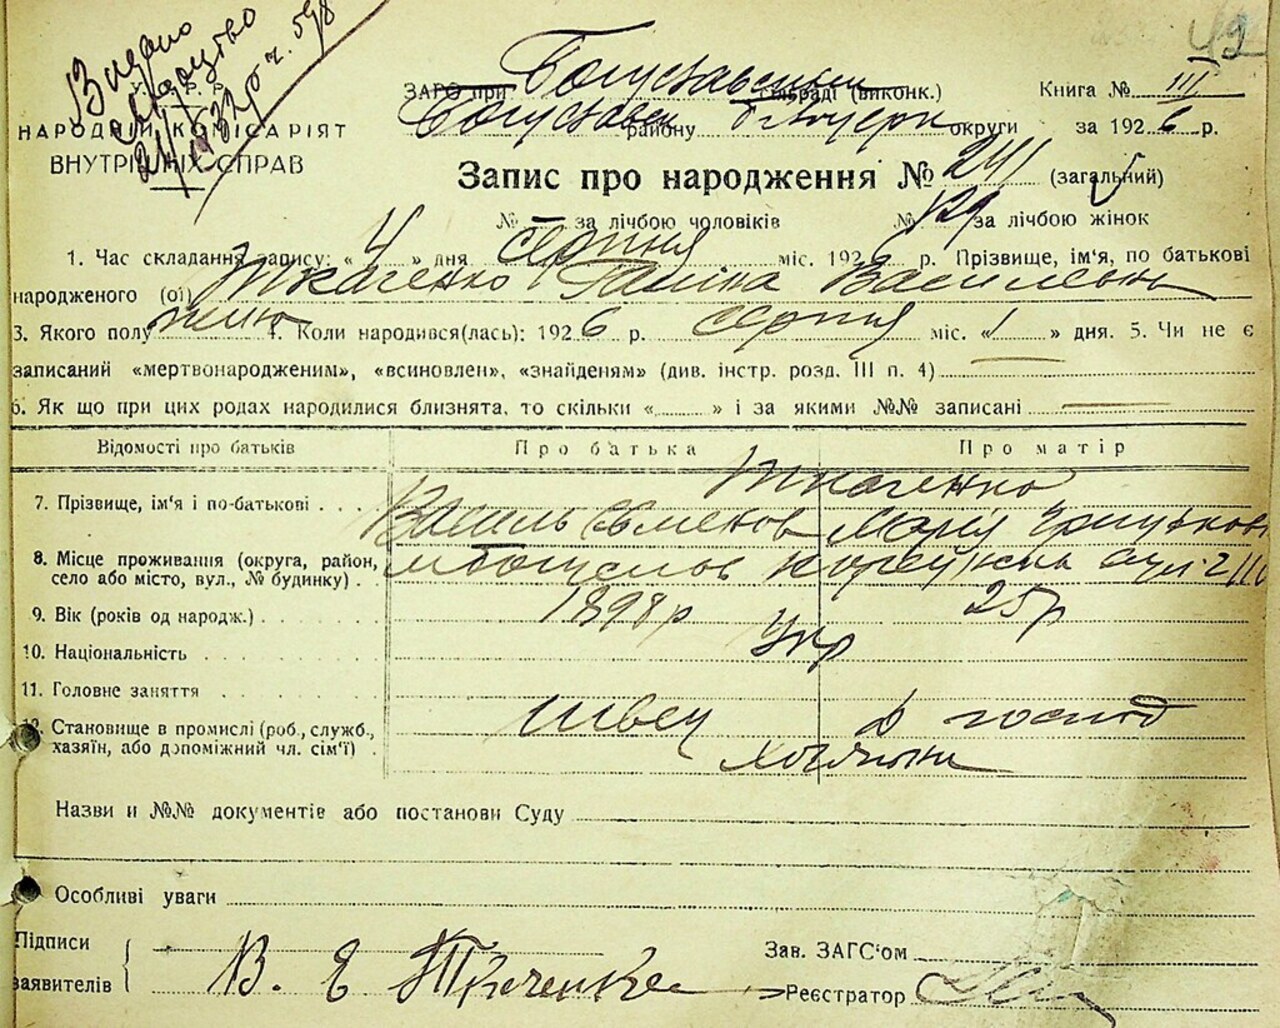 42
Видано
свідоцтво
У. Р. Р.
ЗАГС при Богуславськім сільраді (виконк.) Книга № III
НАРОДНІЙ КОМІСАРІЯТ Богуславськ району б/церк округи за 1926 р.
ВНУТРІШНІХ СПРАВ
Запис про народження № 241 (загальний)
№ — за лічбою чоловіків № 129 за лічбою жінок
1. Час складання запису: « 4 » дня серпня міс. 1926 р. Прізвище, ім'я, по батькові
народженого (ої) Ткаченко Ганна Васильевн
3. Якого полу жіно 4. Коли народився(лась): 1926 р. серпня міс. « 1 » дня. 5. Чи не є
записаний «мертвонародженим», «всиновлен», «знайденям» (див. інстр. розд. III п. 4) —
6. Як що при цих родах народилися близнята, то скільки « » і за якими №№ записані —
Відомості про батьків Про батька Про матір
Ткаченко
7. Прізвище, ім'я і по-батькові Василь Марія
8. Місце проживання (округа, район,
село або місто, вул., № будинку)
9. Вік (років од народж.) 1898 р 25 р
10. Національність Укр
11. Головне заняття
швец д господ
12. Становище в промислі (роб., служб.,
хазяїн, або допоміжний чл. сім'ї)
Назви и №№ документів або постанови Суду
Особливі уваги
Підписи Зав. ЗАГС'ом
заявителів В. Е Ткаченко Реєстратор